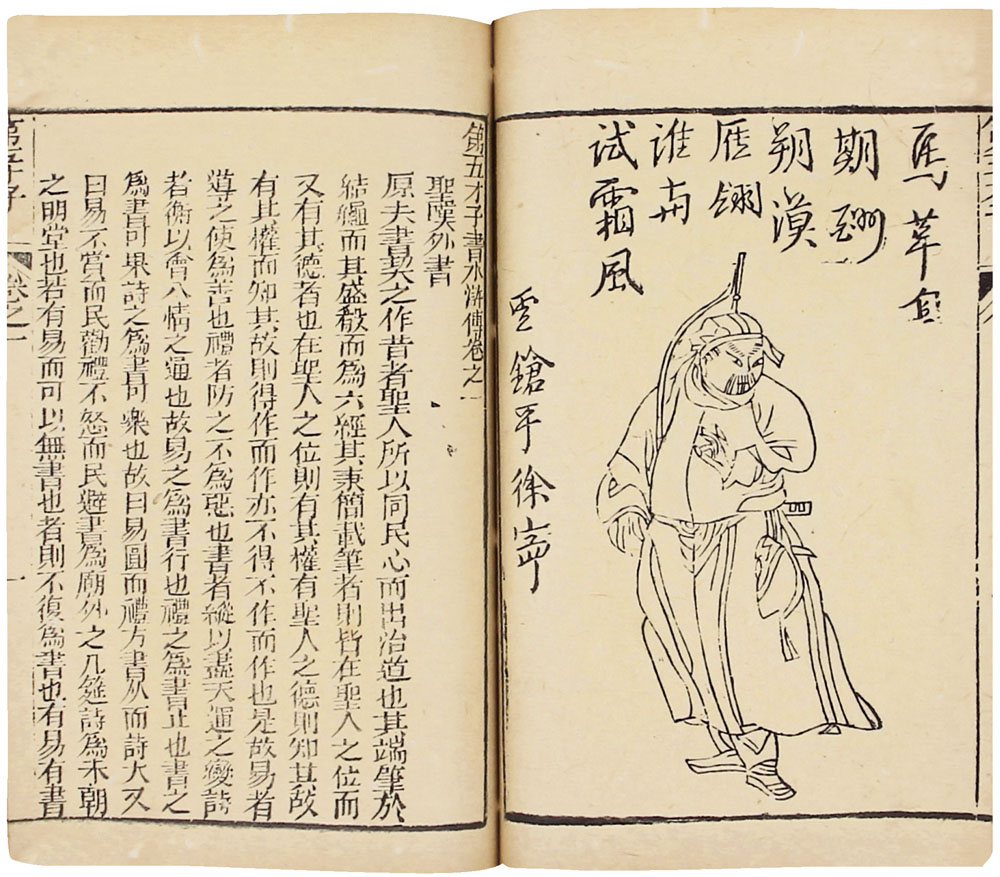 朔漠
雁翎
試霜風
鎗手徐寧
第五才子書水滸傳卷之一
聖嘆外書
原夫書契之作昔者聖人所以同民心而出治道也其端肇於
結繩而其盛殽而為六經其秉簡載筆者則皆在聖人之位而
又有其德者也在聖人之位則有其權有聖人之德則知其故
有其權而知其故則得作而作亦不得不作而作也是故易者
導之使為善也禮者防之不為惡也書者縱以盡天運之變詩
者衡以會人情之通也故易之為書行也禮之為書止也書之
為書可畏詩之為書可樂也故曰易圓而禮方書久而詩大又
曰易不賞而民勸禮不怒而民避書為廟外之几筵詩為未朝
之明堂也若有易而可以無書也者則不復為書也有易有書
卷之一
一